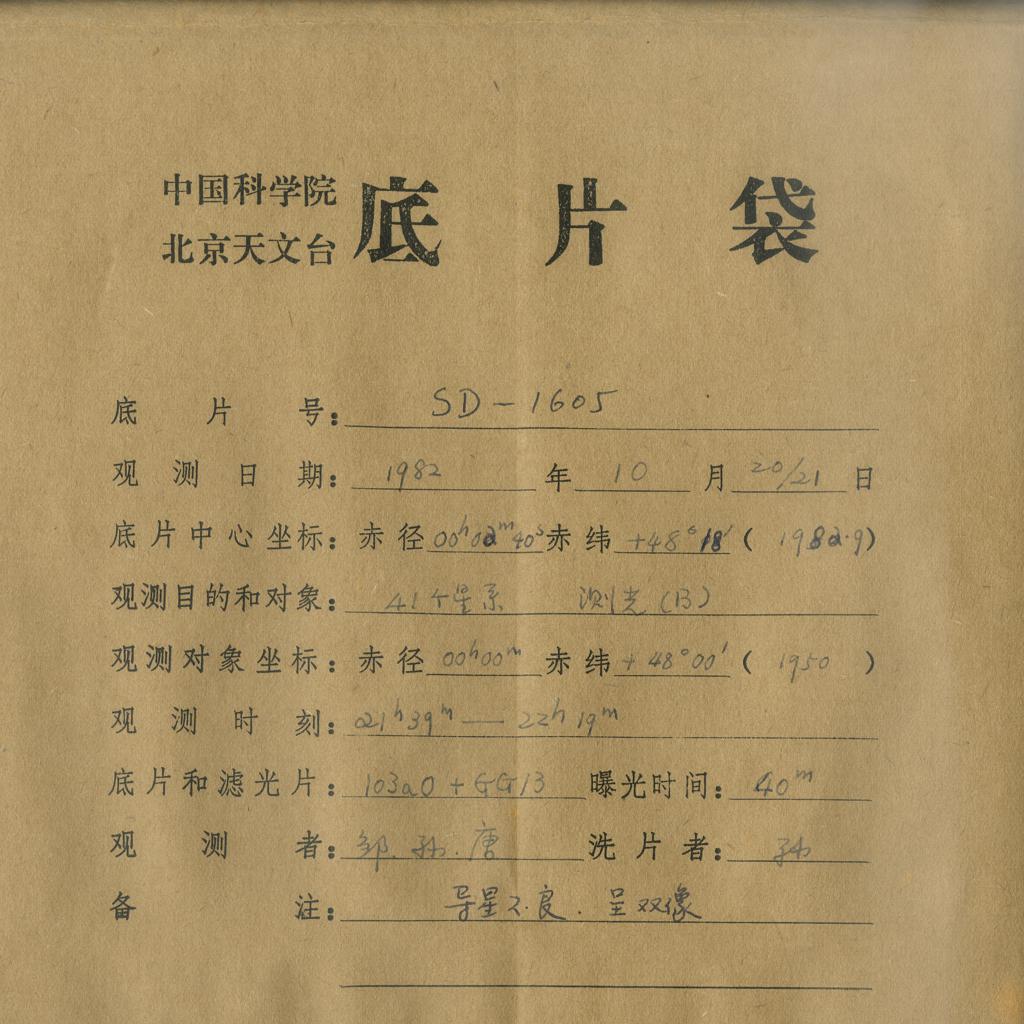 中国科学院
北京天文台
底片袋
底片号：SD-1605
观测日期：1982年10月20/21日
底片中心坐标：赤径00h02m40s赤纬+48°18′(1982.9)
观测目的和对象：41个星系 测光(B)
观测对象坐标：赤径00h00m赤纬+48°00′(1950)
观测时刻：21h39m—22h19m
底片和滤光片：103aO+GG13 曝光时间：40m
观测者：邹.孙.唐 洗片者：孙
备注：导星不良.呈双像